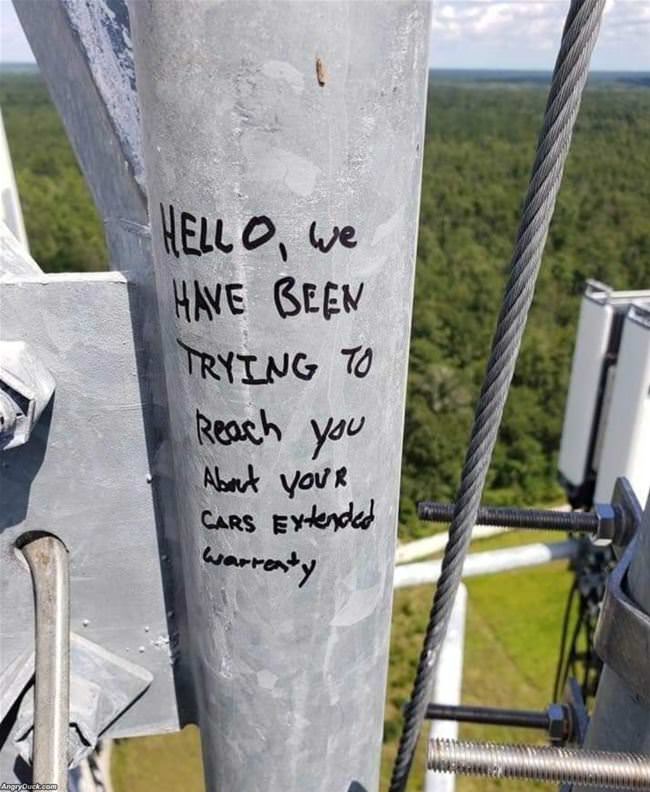 HELLO, we
HAVE BEEN
TRYING TO
Reach you
About YOUR
CARS Extended
warrenty
AngryDuck.com